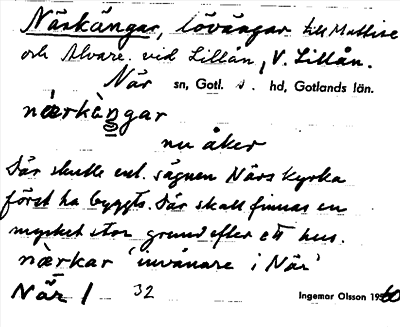 Närkängar, lövängar till Mattise
och Alvare. vid Lillån, V. Lillån.
När sn, Gotl. s. hd, Gotlands län.
nærkængar
nu åker
Där skulle enl. sägnen Närs kyrka
först ha byggts. Där skall finnas en
mycket stor grund efter ett hus.
nærkar 'invånare i När'
När 1 32 Ingemar Olsson 1960